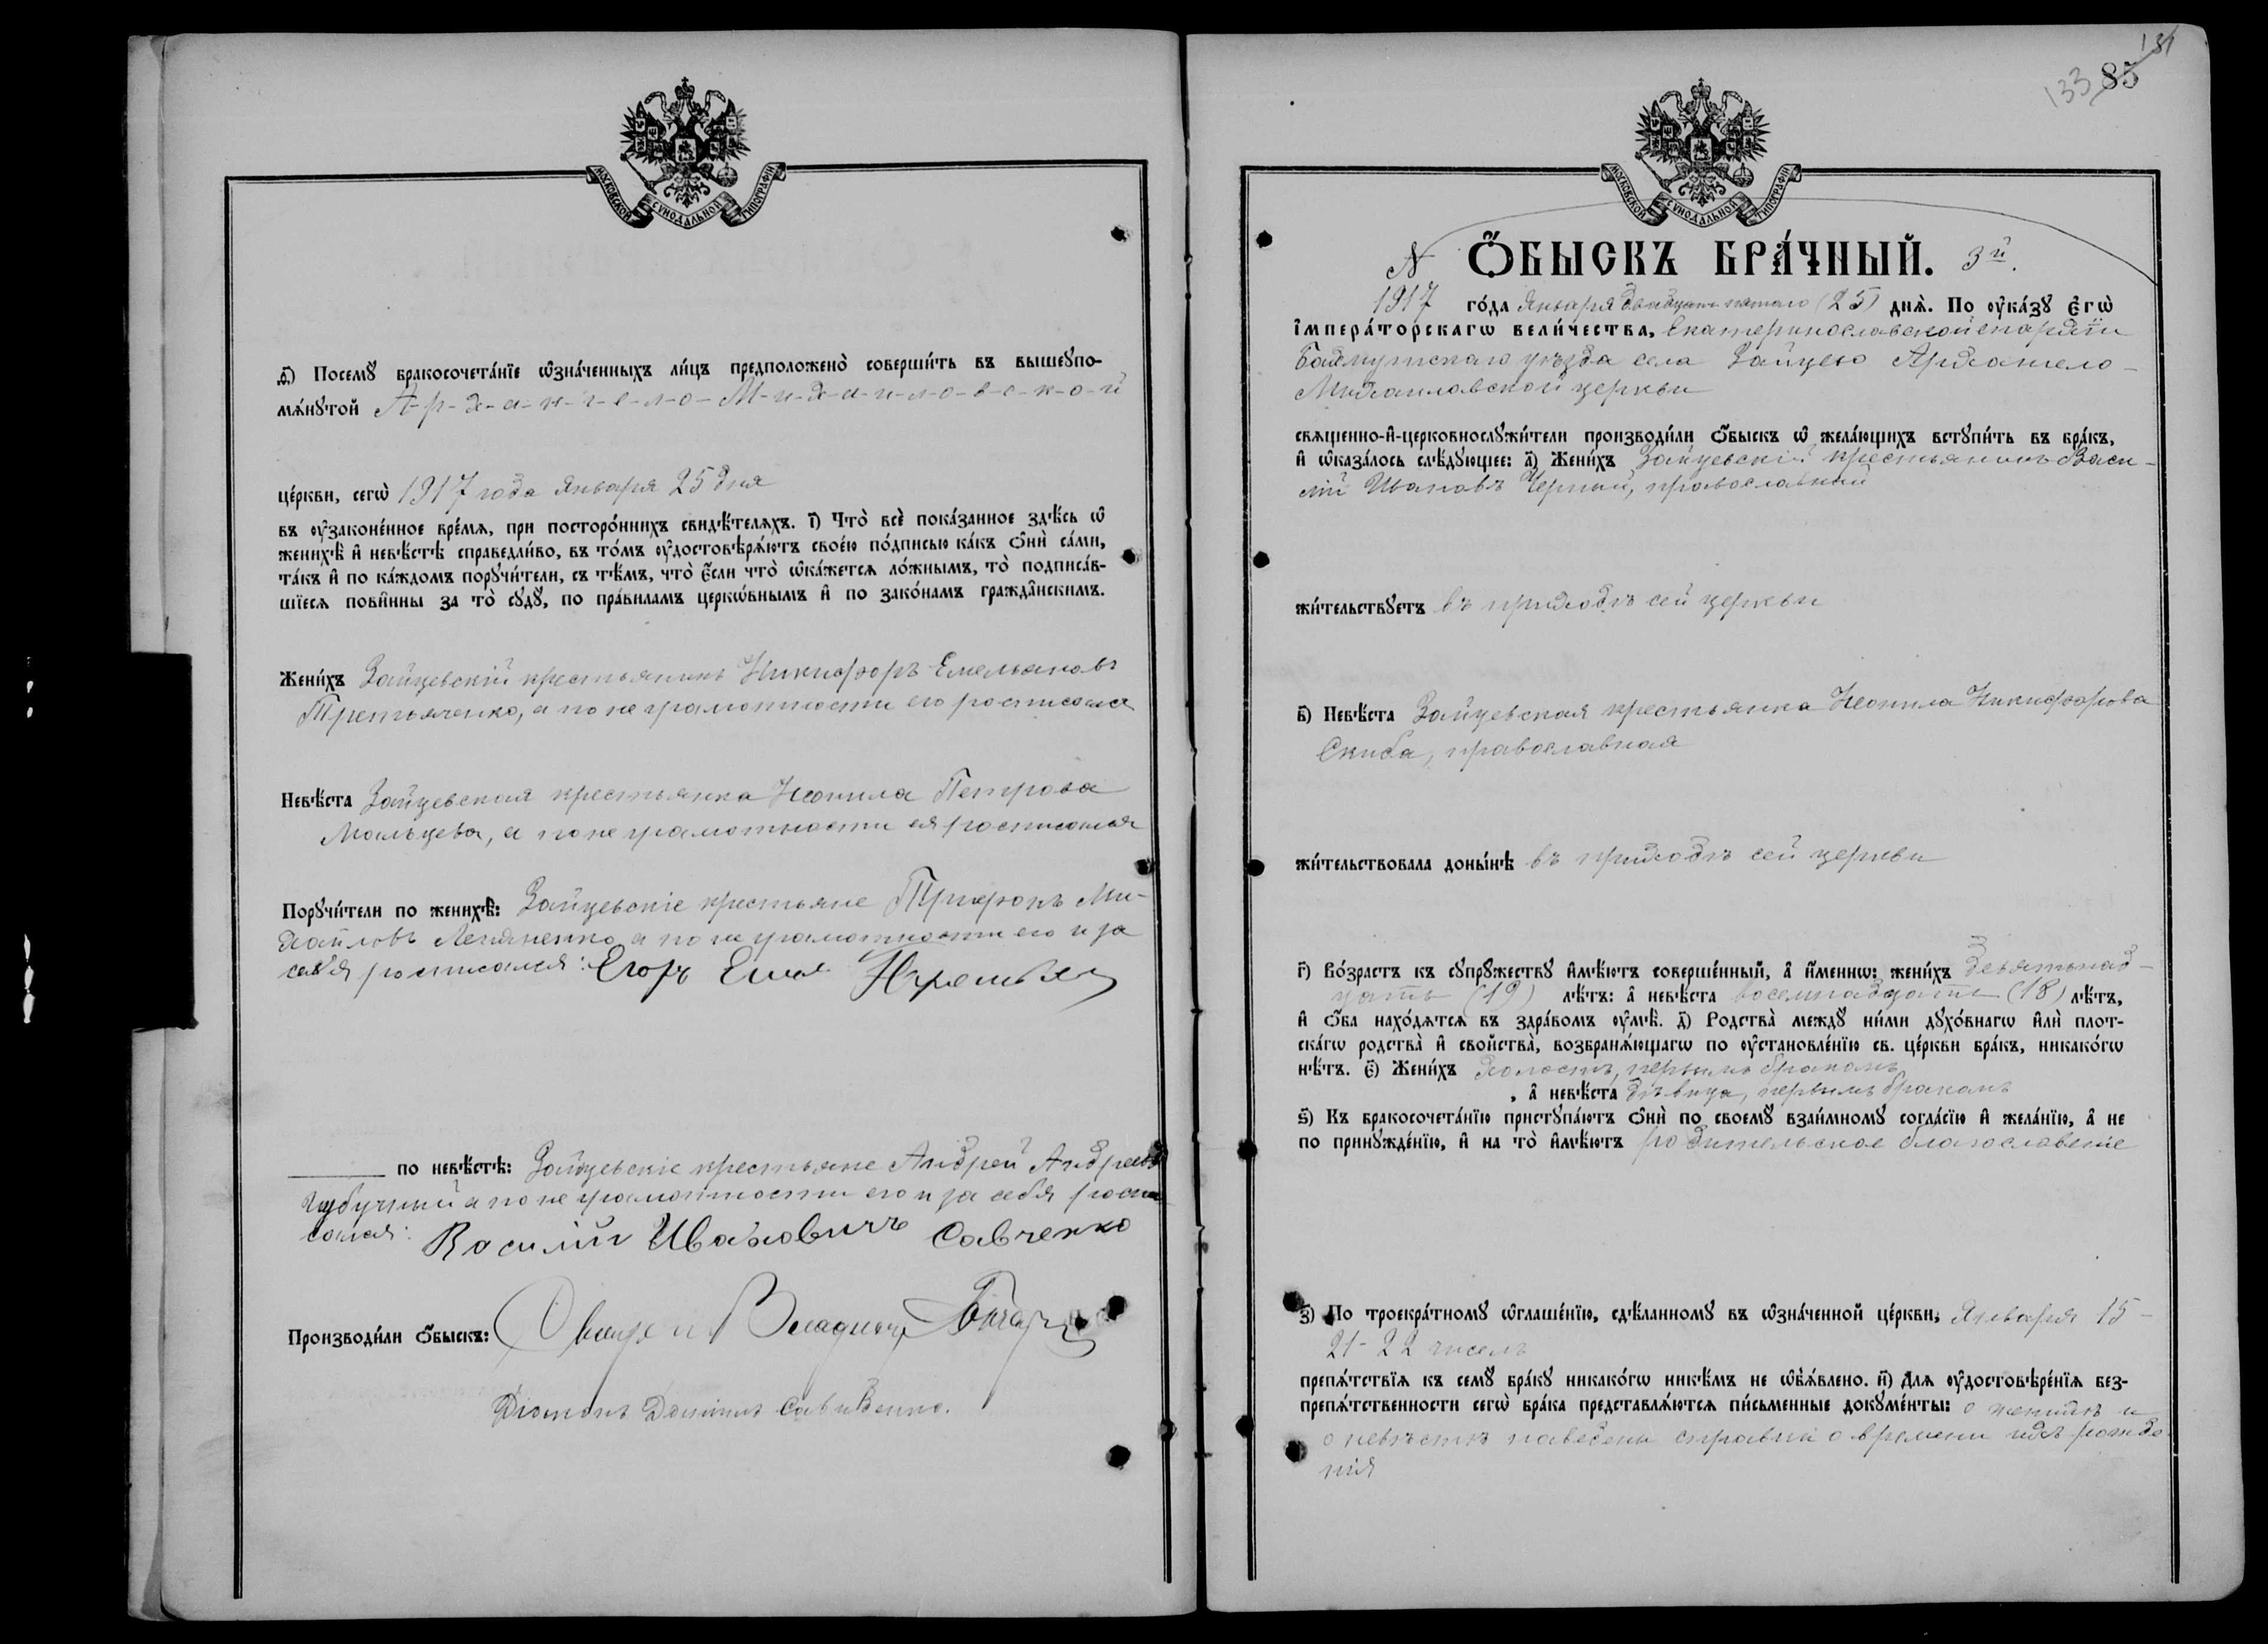 МОСКОВСКОЙ СѴНОДАЛЬНОЙ ТИПОГРАФІИ
ѳ҃) Посемꙋ̀ бракосочета́нїе ѡ҆зна́ченныхъ ли́цъ предположено̀ соверши́ть въ вышеꙋпо-
мѧ́нꙋтой А-р-х-а-н-г-е-л-о-М-и-х-а-и-л-о-в-с-к-о-й
це́ркви, сегѡ̀ 1917 года Января 25 дня
въ ᲂу҆законе́нное вре́мѧ, при посторо́ннихъ свидѣ́телѧхъ. і҃) Что̀ всѐ пока́занное здѣ́сь ѡ҆
женихѣ̀ и҆ невѣ́стѣ справедли́во, въ то́мъ ᲂу҆достовѣрѧ́ютъ свое́ю по́дписью ка́къ ѻ҆нѝ са́ми,
та́къ и҆ по ка́ждомъ порꙋчи́тели, съ тѣ́мъ, что̀ є҆́сли что̀ ѡ҆ка́жетсѧ ло́жнымъ, то̀ подписа́в-
шїесѧ пови́нны за то̀ сꙋдꙋ̀, по пра́виламъ церкѡ́внымъ и҆ по зако́намъ гражда̑нскимъ.
Жени́хъ Зайцевскій крестьянинъ Никифоръ Емельяновъ
Третьяченко, а по не грамотности его росписался
Невѣ́ста Зайцевская крестьянка Неонила Петрова
Мальцева, а по не грамотности ея росписался
Порꙋчи́тели по женихѣ̀: Зайцевскіе крестьяне Трифонъ Ми-
хайловъ а по не грамотности его и за
себя росписался: Егоръ
по невѣ́стѣ: Зайцевскіе крестьяне Андрей Андреевъ
а по не грамотности его и за себя роспи
сался: Василій Ивановичъ Савченко
Производи́ли ѻ҆́быскъ: Священ Владиміръ
Діаконъ Даніилъ
131
133 85
МОСКОВСКОЙ СѴНОДАЛЬНОЙ ТИПОГРАФІИ
N Ѻ҆́БЫСКЪ БРА́ЧНЫЙ. 3й.
1917 го́да Января двадцать пятаго (25) днѧ̀. По ᲂу҆ка́зꙋ Є҆гѡ̀
І҆мпера́торскагѡ вели́чества, Екатеринославской епархіи
Бахмутскаго уѣзда села Зайцево Архангело-
Михаиловской церкви
свѧщенно-и҆-церковнослꙋжи́тели производи́ли ѻ҆́быскъ ѡ҆ жела́ющихъ встꙋпи́ть въ бра́къ,
и҆ ѡ҆каза́лось слѣ́дꙋющее: а҃) Жени́хъ Зайцевскій крестьянинъ Васи-
лій Ивановъ Черный, православный
жи́тельствꙋетъ въ приходѣ сей церкви
в҃) Невѣ́ста Зайцевская крестьянка Неонила Никифорова
Скиба, православная
жи́тельствовала доны́нѣ въ приходѣ сей церкви
г҃) Во́зрастъ къ сꙋпрꙋ́жествꙋ и҆мѣ́ютъ соверше́нный, а҆ и҆́меннѡ: жени́хъ девятнад-
цать (19) лѣ́тъ: а҆ невѣ́ста восемнадцать (18) лѣ́тъ,
и҆ ѻ҆́ба нахо́дѧтсѧ въ здра́вомъ ᲂу҆мѣ̀. д҃) Родства̀ междꙋ̀ ни́ми дꙋхо́внагѡ и҆лѝ плот-
ска́гѡ родства̀ и҆ сво́йства̀, возбранѧ́ющагѡ по ᲂу҆становле́нїю св. це́ркви бра́къ, никако́гѡ
нѣ́тъ. є҃) Жени́хъ холостъ, первымъ бракомъ
, а҆ невѣ́ста дѣвица, первымъ бракомъ
ѕ҃) Къ бракосочета́нїю пристꙋпа́ютъ ѻ҆нѝ по своемꙋ̀ взаи́мномꙋ согла́сїю и҆ жела́нїю, а҆ не
по принꙋжде́нїю, и҆ на то̀ и҆мѣ́ютъ родительское благословеніе
з҃) По троекра́тномꙋ ѡ҆глаше́нїю, сдѣ́ланномꙋ въ ѡ҆зна́ченной це́ркви, Января 15-
21-22 чиселъ
препѧ́тствїѧ къ семꙋ̀ бра́кꙋ никако́гѡ никѣ́мъ не ѡ҆б̾ѧ́влено. и҃) Длѧ ᲂу҆достовѣре́нїѧ без-
препѧ́тственности сегѡ̀ бра́ка представлѧ́ютсѧ пи́сьменные докꙋме́нты: о женихѣ и
о невѣстѣ наведены справки о времени ихъ рожде
нія